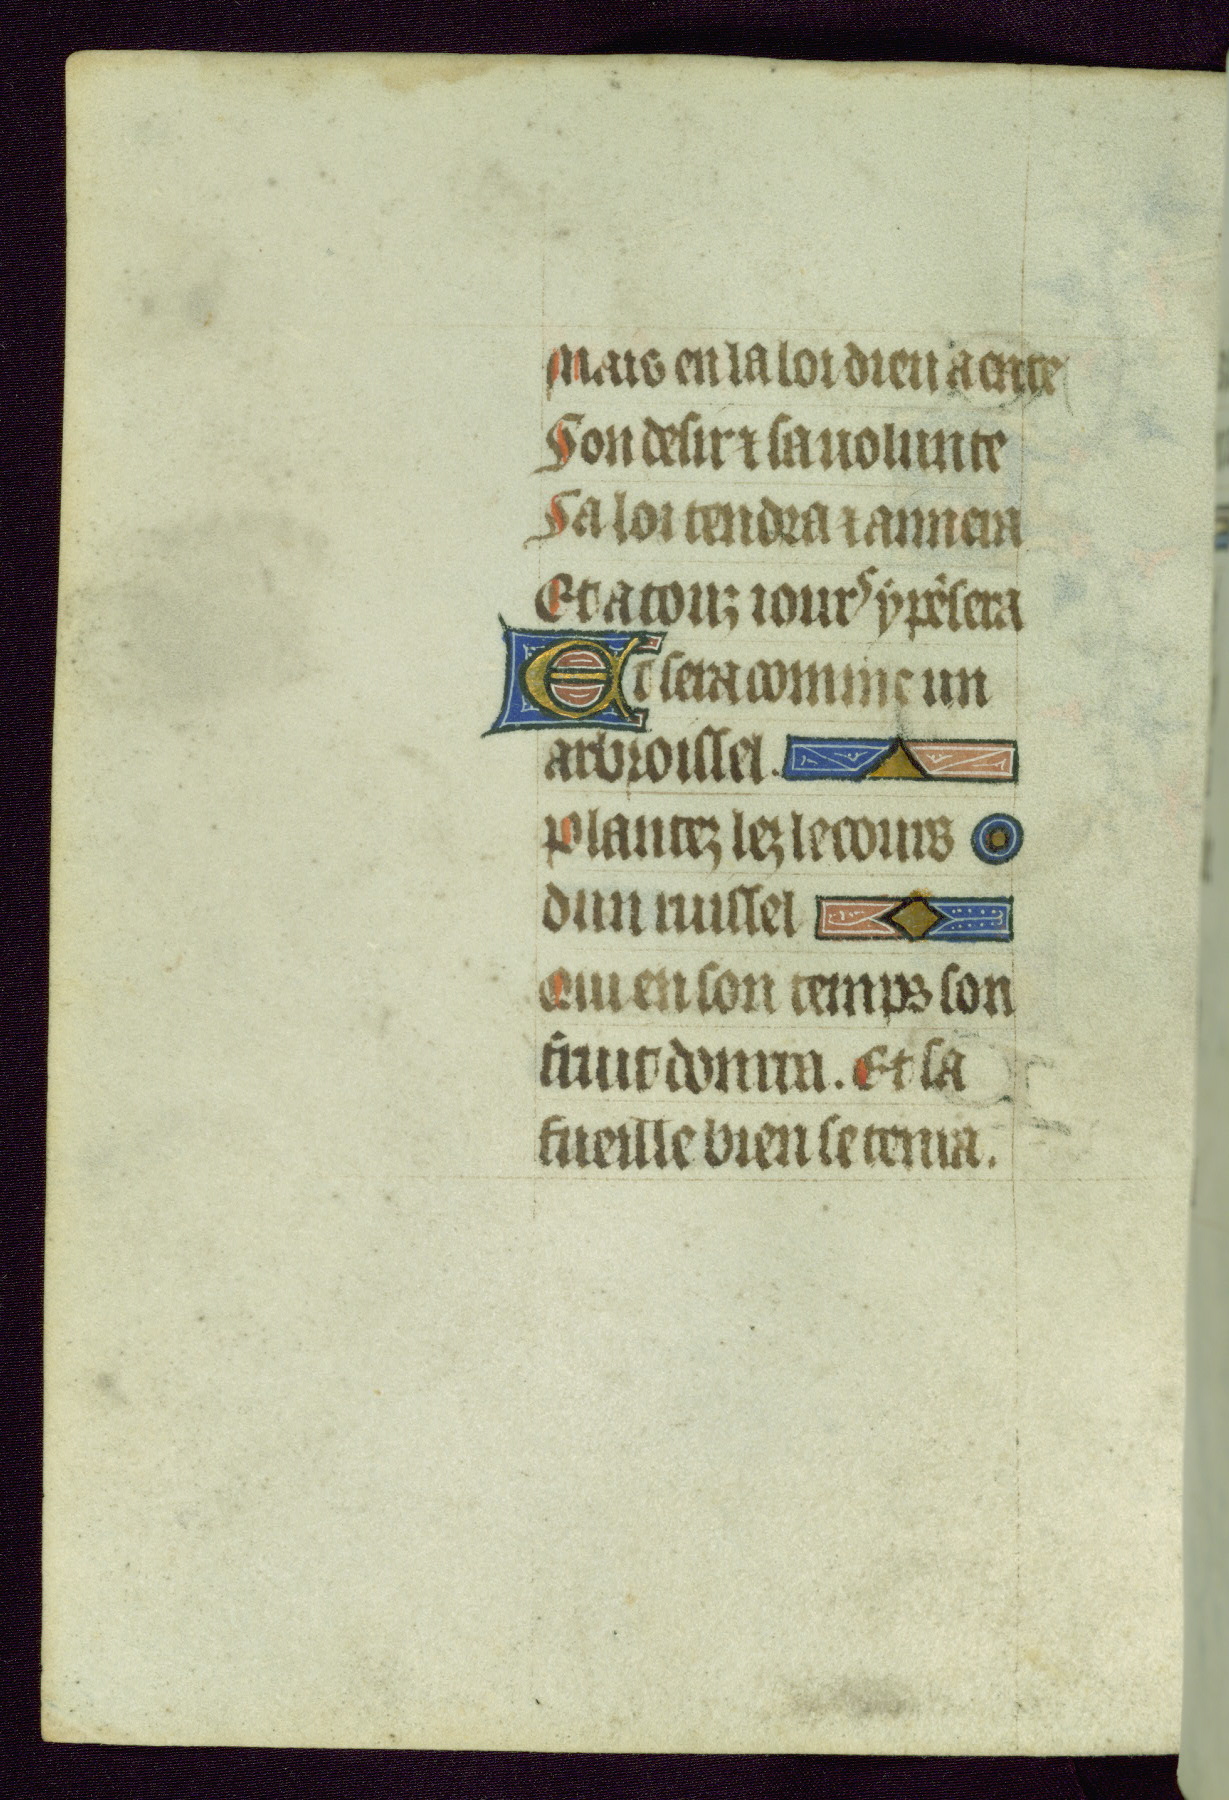 Mais en la loi dieu a ente
Son desir ⁊ sa uolunte
Sa loi tendra ⁊ annera
Et a touz iours y pe͂sera
Et sera comme un
arbroissel.
Plantez lez le cours
dun ruissel
Qui en son temps son
fruit donrra. Et sa
fueille bien se tenra.